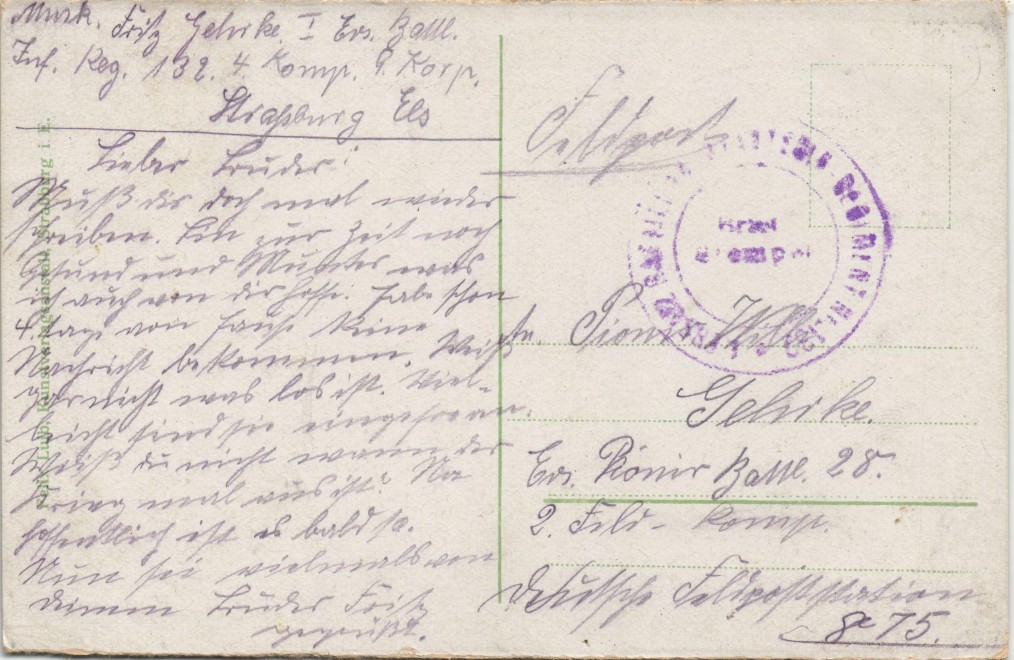 Musk. Fritz Gehrke. I Ers. Batl.
Inf. Reg. 132. 4. Komp. 9. Korp.
Straßburg Els
Lieber Bruder!
Muß dir doch mal wieder
schreiben. Bin zur Zeit noch
Gesund und Munter was
ich auch von dir hoffe. Habe schon
4 Tage von Hause keine
Nachricht bekommen. Weiß
gar nicht was los ist. Viel-
leicht sind sie eingefroren.
Weißt du nicht wann der
Krieg mal aus ist? Na
hoffentlich ist es bald so.
Nun sei vielmals von
deinem Bruder Fritz
gegrüßt.
Feldpost
Brief
stempel
Pionier Willi
Gehrke.
Ers. Pionir Batl. 28.
2. Feld-Komp.
Deutsche Feldpoststation
875.
Kunstverlagsanstalt, Straßburg i. E.